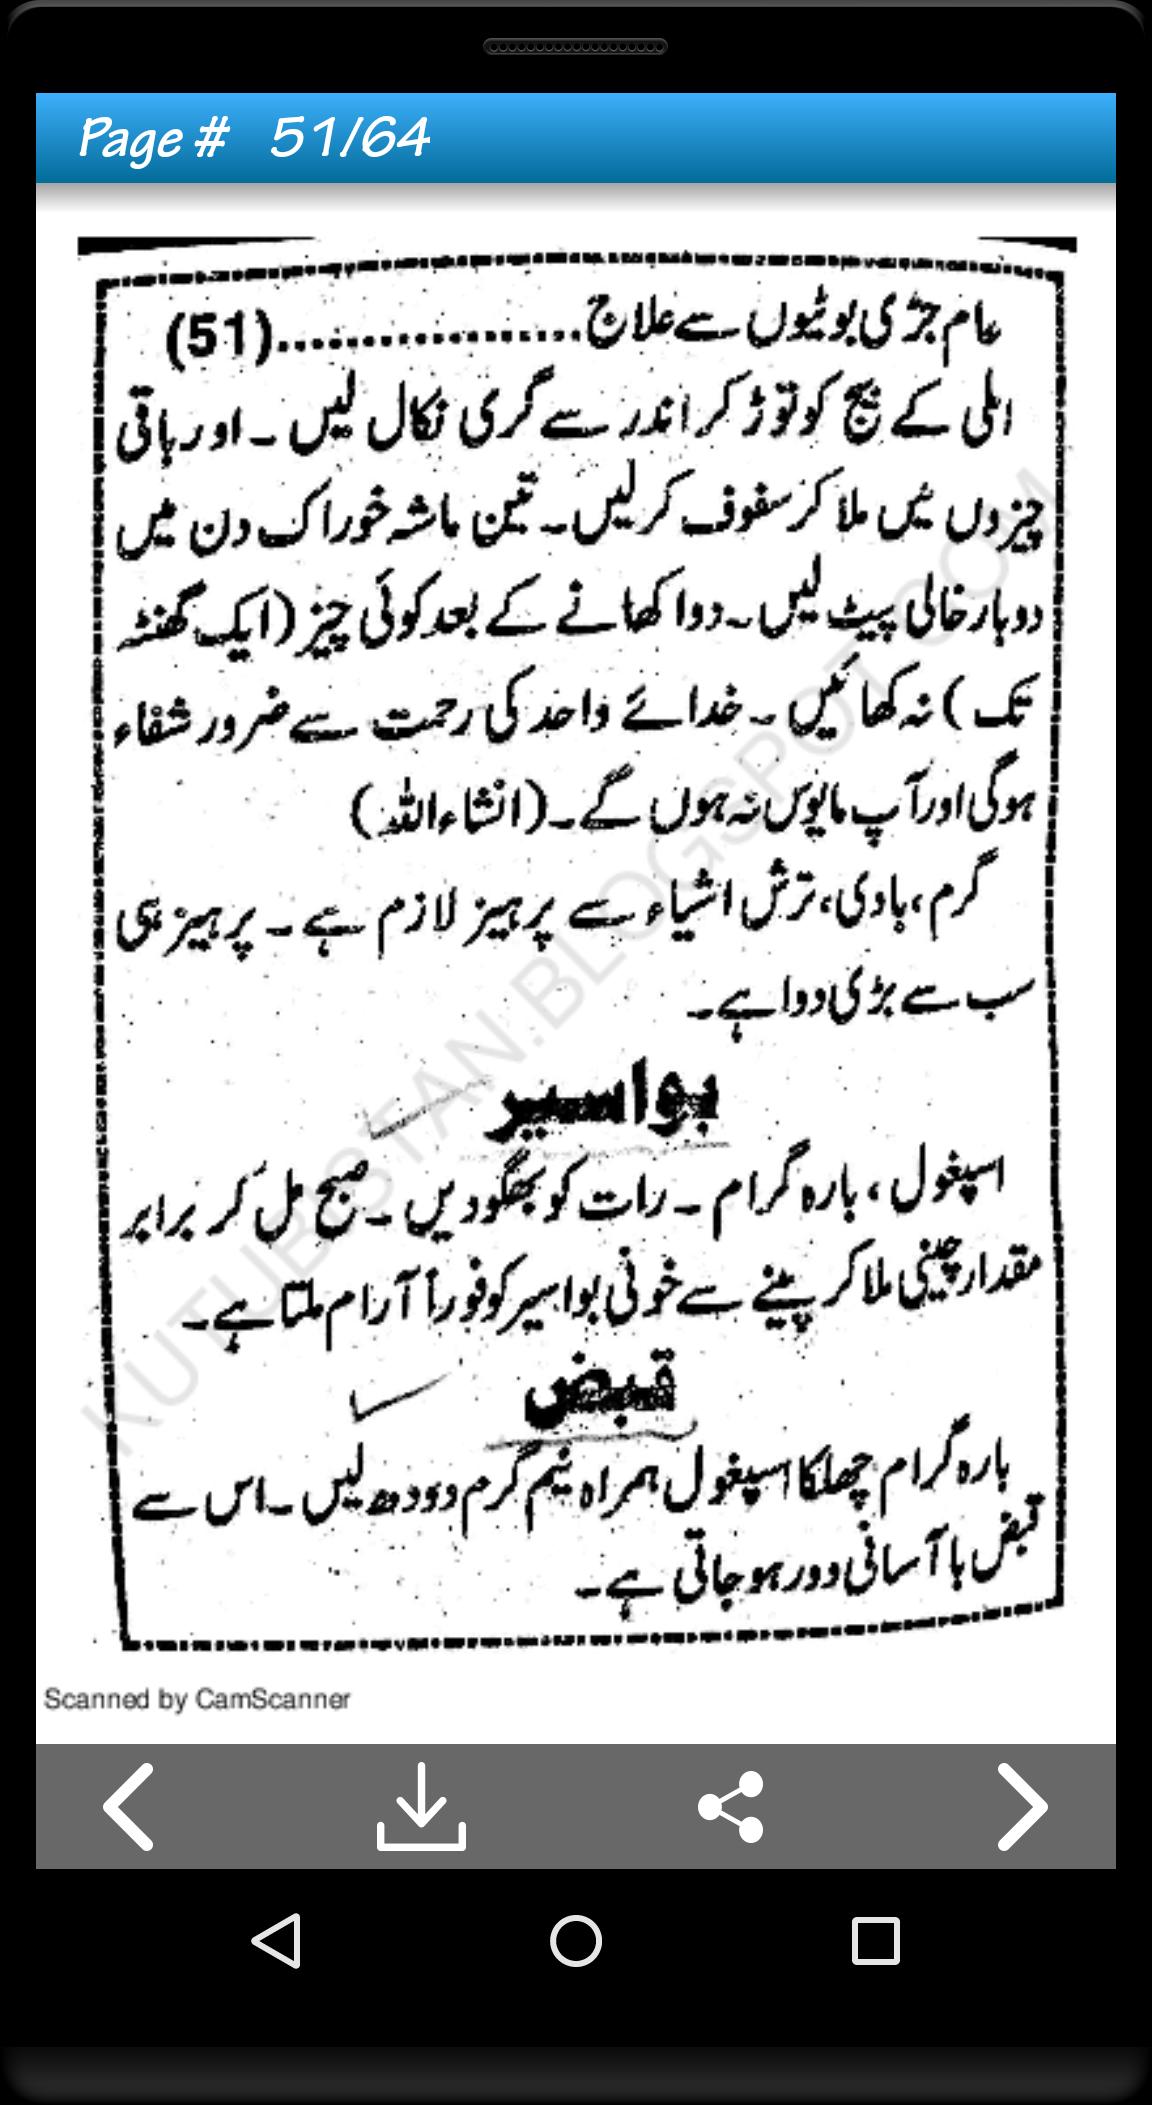 Page # 51/64
عام جڑی بوٹیوں سے علاج...................(51)
املی کے بیج کو توڑ کر اندر سے گری نکال لیں ۔ اور باقی
چیزوں میں ملا کر سفوف کرلیں۔ تین ماشہ خوراک دن میں
دو بار خالی پیٹ لیں۔ دوا کھانے کے بعد کوئی چیز (ایک گھنٹہ
تک) نہ کھائیں ۔ خدائے واحد کی رحمت سے ضرور شفاء
ہوگی اور آپ مایوس نہ ہوں گے۔ (انشاءاللہ)
گرم، بادی، ترش اشیاء سے پرہیز لازم ہے ۔ پرہیز ہی
سب سے بڑی دوا ہے۔
بواسیر
اسپغول، بارہ گرام ۔ رات کو بھگودیں ۔ صبح مل کر برابر
مقدار چینی ملا کر پینے سے خونی بواسیر کو فوراً آرام ملتا ہے۔
قبض
بارہ گرام چھلکا اسپغول ہمراہ نیم گرم دودھ لیں ۔ اس سے
قبض با آسانی دور ہو جاتی ہے۔
KUTUBISTAN.BLOGSPOT.COM
Scanned by CamScanner